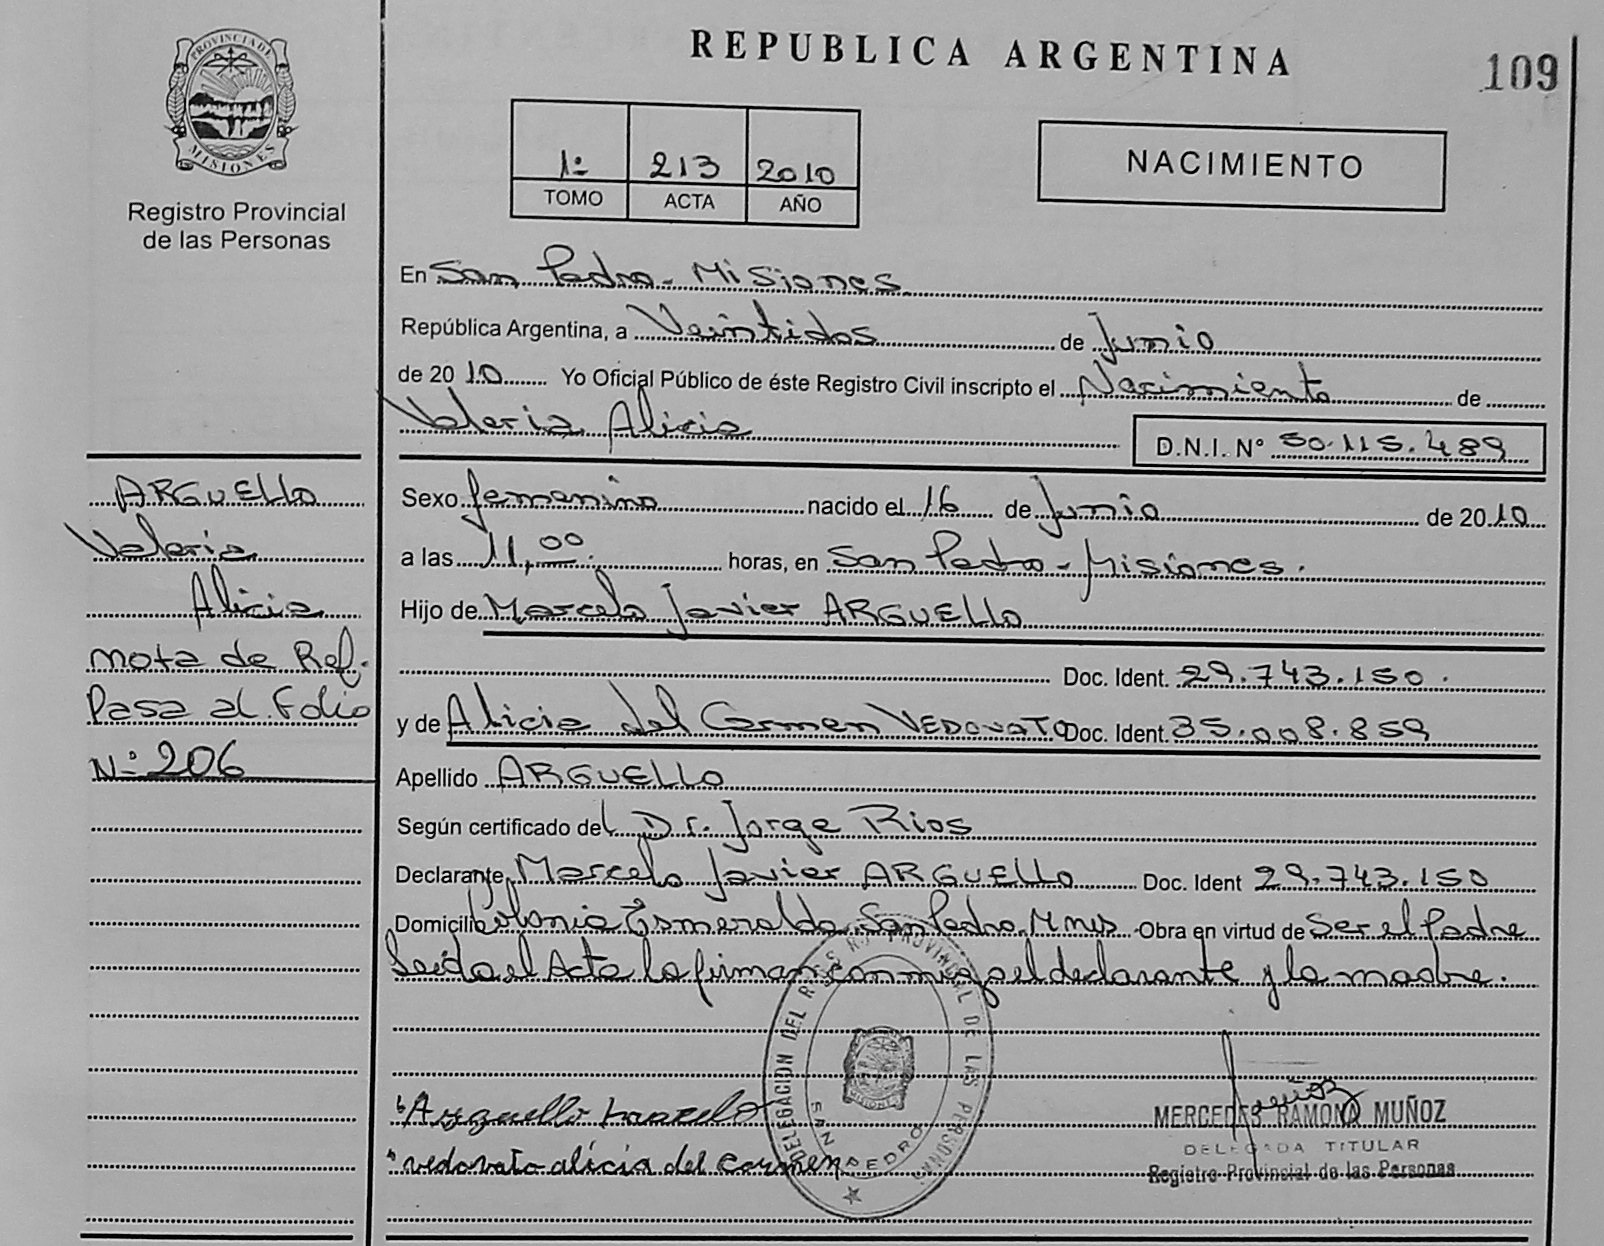 PROVINCIA DE
MISIONES
Registro Provincial
de las Personas
REPUBLICA ARGENTINA
109
1º 213 2010
TOMO ACTA AÑO
NACIMIENTO
En San Pedro - Misiones
República Argentina, a Veintidos de Junio
de 2010 Yo Oficial Público de éste Registro Civil inscripto el Nacimiento de
Valeria Alicia
D.N.I. Nº 50.115.489
ARGUELLO
Valeria
Alicia
nota de Ref.
Pasa al Folio
Nº 206
Sexo femenino nacido el 16 de Junio de 2010
a las 11,00 horas, en San Pedro - Misiones.
Hijo de Marcelo Javier ARGUELLO
Doc. Ident. 29.743.150.
y de Alicia del Carmen VEDOVATO Doc. Ident. 35.008.859
Apellido ARGUELLO
Según certificado del Dr. Jorge Rios
Declarante Marcelo Javier ARGUELLO Doc. Ident 29.743.150
Domicilio Colonia Esmeralda San Pedro Mnes Obra en virtud de Ser el Padre
Leida el Acta la firman conmigo el declarante y la madre.
DELEGACION DEL R. PROVINCIAL DE LAS PERSONAS
SAN PEDRO
MISIONES
Arguello Marcelo
vedovato alicia del carmen
MERCEDES RAMONA MUÑOZ
DELEGADA TITULAR
Registro Provincial de las Personas